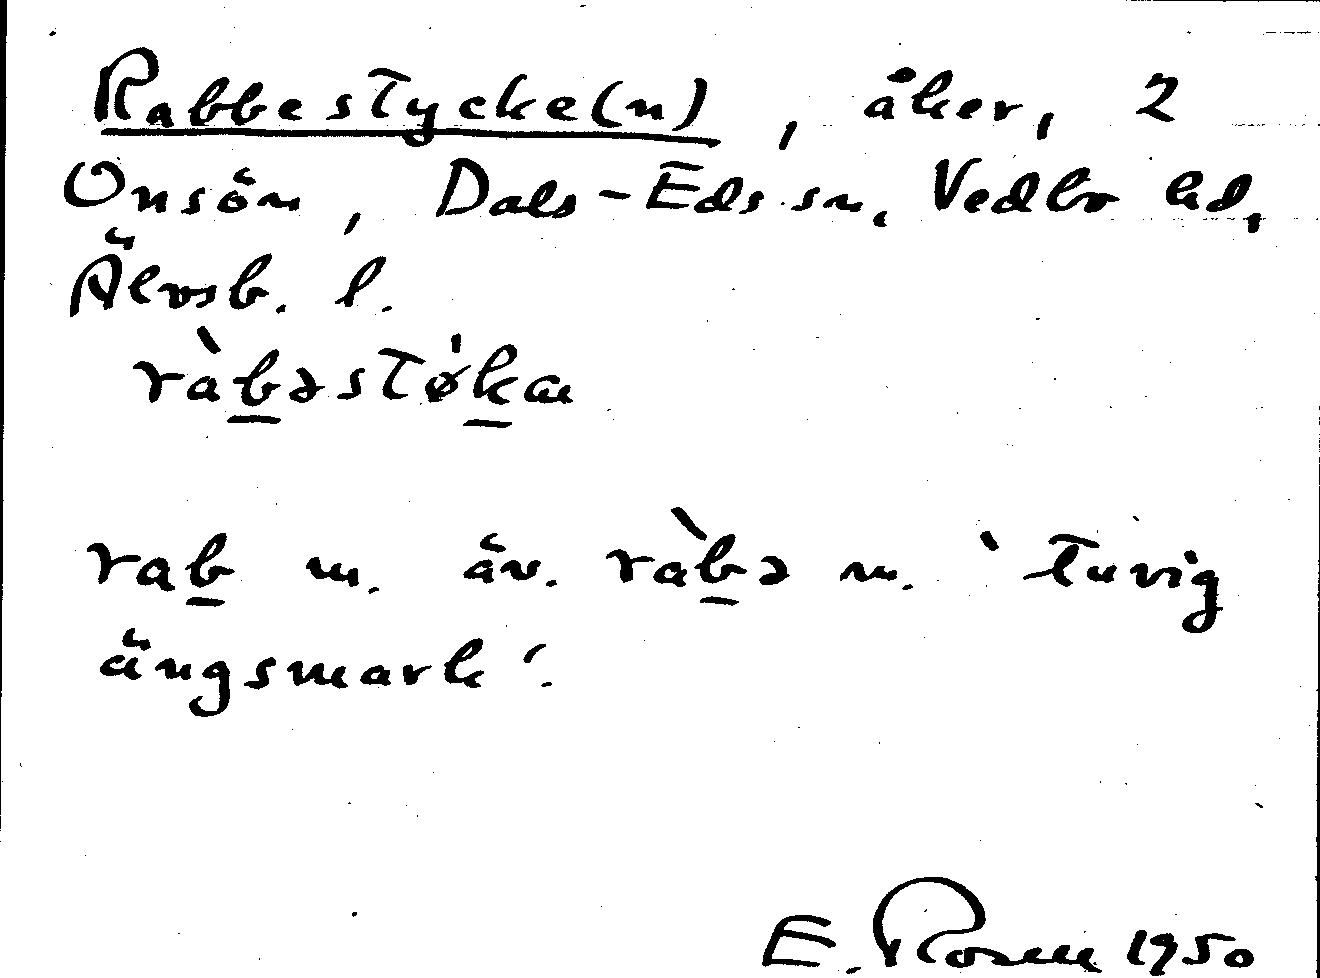 Rabbestycke(n), åker, 2
Onsön, Dals-Eds sn, Vedbo hd,
Älvsb. l.
ràb̲əstø̍k̲æ
rab̲ m. äv. ràb̲ə m. 'tuvig
ängsmark'.
E. Rosen 1950